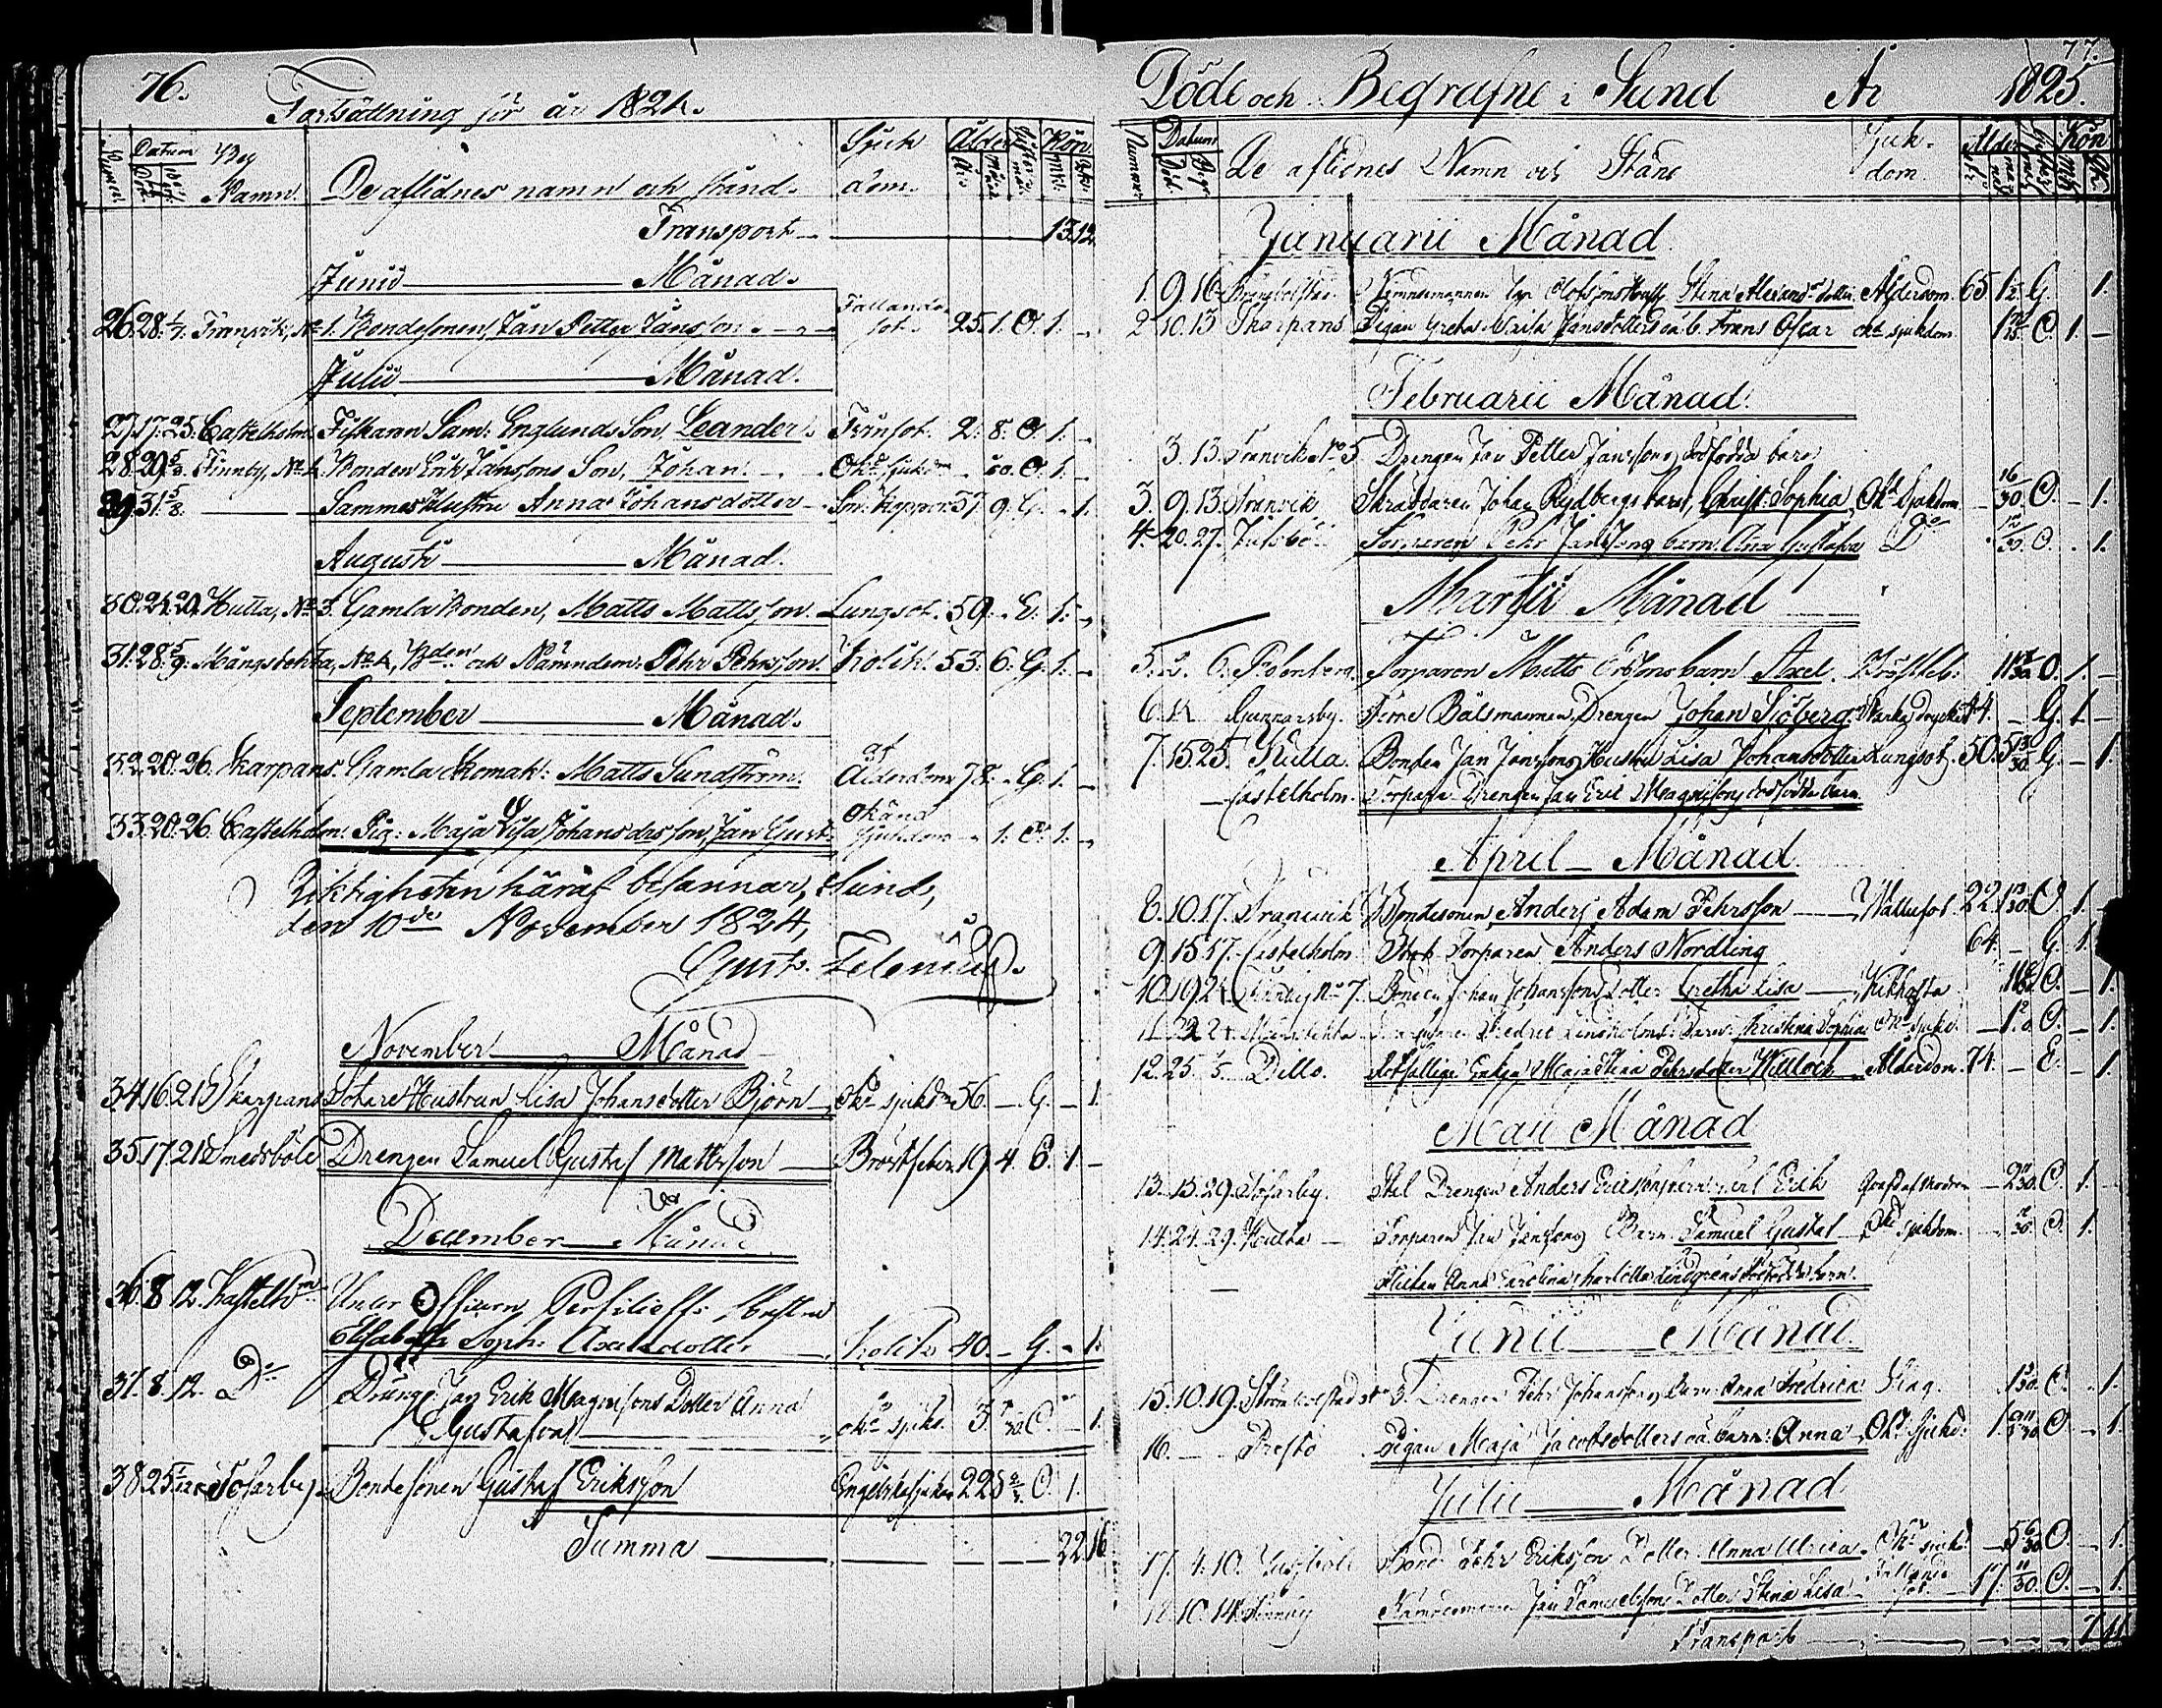 76.
Fortsättning för år 1824.
Numer. Datum Död. Begr. Byg Namn. De aflidnes namn och stånd. Sjuk dom. Ålder År. Månad Gifter mål Kön. Mk. Qk.
Transport 13. 12.
Junii Månad.
26. 28. 4/7. Tranvik, No 1. Bondesonen, Jan Petter Jansson. Fallande sot. 25. 1. O. 1. -
Julii Månad.
27. 17. 25. Castelholm. Fiskaren Sam: Englunds Son, Leander. Tränsot. 2. 8. O. 1. -
28. 29. 5/8. Finnby, No 4. Bonden Erik Janssons Son, Johan. Okd sjukdm O. 1. -
29. 31. 5/8. Sammes Hustru Anna Johansdotter Sm: koppor 37. 9. G. - 1.
Augusti Månad.
30. 24. 29. Hulta, No 3. Gamla Bonden, Matts Mattsson. Lungsot. 59. - E. 1. -
31. 28. 5/9. Mångstekta, No 4, Bden och Nämndem: Pehr Pehrsson. Kolik. 53. 6. G. 1. -
September Månad.
32. 20. 26. Skarpans. Gamla Skomak: Matts Sundström. af Ålderdom 78. - G. 1. -
33. 20. 26. Castelholm. Pig: Maja Lisa Johansdrs son, Jan Gust. okänd sjukdom - 1. O. 1. -
Riktigheten häraf besannar, Sund,
den 10de November 1824,
Gust. Felenius.
November Månad
34. 16. 21. Skarpans Sotare Hustrun Lisa Johansdotter Björn Okd sjukdm 56. - G. - 1.
35. 17. 21. Smedsböle Drengen Samuel Gustaf Mattsson Bröstfeber 19. 4. O. 1. -
December Månad
36. 8. 12. Kastelholm Under Officern Perfilieffs Hustru
Elisabeth Soph: Axelsdotter Kolik 40. - G. - 1.
37. 8. 12. Do Dräng: Jan Erik Magnissons Dotter Anna
Gustafva okd sjukd. 3. O. - 1.
38. 25. Tosarby. Bondesonen Gustaf Eriksson Engelska sjukan 22. 8 O. 1.
Summa 22. 16.
77.
Döde och Begrafne i Sund År 1825.
Numer. Datum Död. Begr. De aflidnes Namn och Stånd Sjuk- dom. Ålder Kön Mk Qk
Januarii Månad
1. 9. 16. Nämndemannen Jan Olofssons Hustr. Stina Alexandersdotter. Ålderdom. 65 G. 1.
2. 10. 13. Skarpans Pigan Greta Maria Jansdotters oä. b. Frans Oscar okd sjukdom. O. 1. -
Februarii Månad.
3. 13. Tranvik No 5 Drengen Jan Petter Janssons dödfödda barn
3. 9. 13. Tranvik Skräddaren Johan Rydbergs barn, Christ. Sophia. Okd Sjukdom 16/30. O. - 1.
4. 20. 27. Julsböle Torparen Pehr Janssons barn Ana Gustafva Do O. - 1.
Martii Månad
5. 2. 6. Torparen Matts Erssons barn Axel Bröstfeb: O. 1. -
6. Gunnarsby. Förre Båtsmannen, Drengen Johan Sjöberg Starka drycker 44. - G. 1. -
7. 15. 25. Kulla. Bonden Jan Janssons Hustru Lisa Johansdotter Lungsot. 50. 5 G. - 1.
Castelholm. Torpare Drengen Jan Eric Magnissons dödfödda barn
April Månad.
8. 10. 17. Tranvik Bondesonen, Anders Adam Pehrsson Wattusot. 22. O. 1.
9. 15. 17. Castelholm. Torparen Anders Nordling 64. - G. 1.
10. 19. 24. Finnby No 7. Bonden Johan Johanssons Dotter Gretha Lisa Kikhosta O. - 1.
11. 22. 24. Mångstekta Fredric Lindholms Barn: Christina Sophia Okd sjukd. O. - 1.
12. 25. 1/5. Ditto. Rotfattiga Enkan Maja Stina Pehrsdotter Willock Ålderdom. 74. - E. - 1.
Maii Månad
13. 15. 29. Tosarby. Drengen Anders Erikssons barn Carl Erik O. 1. -
14. 24. 29. Hulta Torparen Jan Janssons Barn Samuel Gustaf Okd Sjukdom. O. 1.
Flickan Anna Carolina Charlotta Lindgrens dödfödda barn.
Junii Månad.
15. 10. 19. Strömbolstad No 3. Drengen Pehr Johanssons barn Anna Fredrica Slag. O. - 1.
16. Prestö Pigan Maja Jacobsdotters oä. barn: Anna Okd Sjukd: 1. O. - 1.
Julii Månad
17. 4. 10. Bond: Pehr Erikssons Dotter Anna Ulrica. Okd sjukd - 5 O. - 1.
18. 10. 14. Finnby Nämndeman Jan Samuelssons Dotter Stina Lisa Fallande sot. 17. 11/30. O. - 1.
Transport 7. 11.